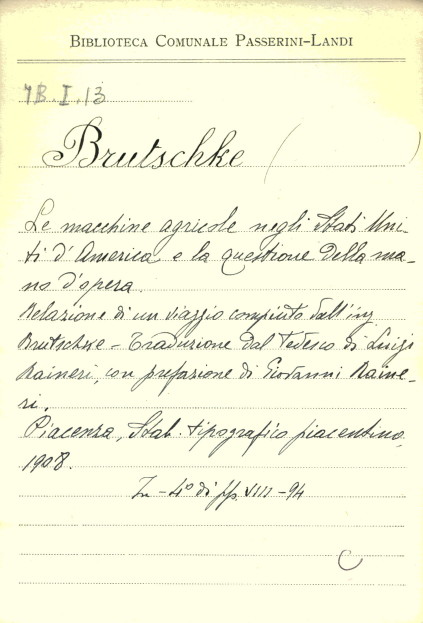 BIBLIOTECA COMUNALE PASSERINI-LANDI
7B.I.13
Brutschke ( )
Le macchine agricole negli Stati Uni-
ti d'America e la questione della ma-
no d'opera.
Relazione di un viaggio compiuto dall'ing
Brutschke - Traduzione dal Tedesco di Luigi
Raineri, con prefazione di Giovanni Raine-
ri.
Piacenza, Stab. tipografico piacentino,
1908.
In-4° di pp. VIII-94
C